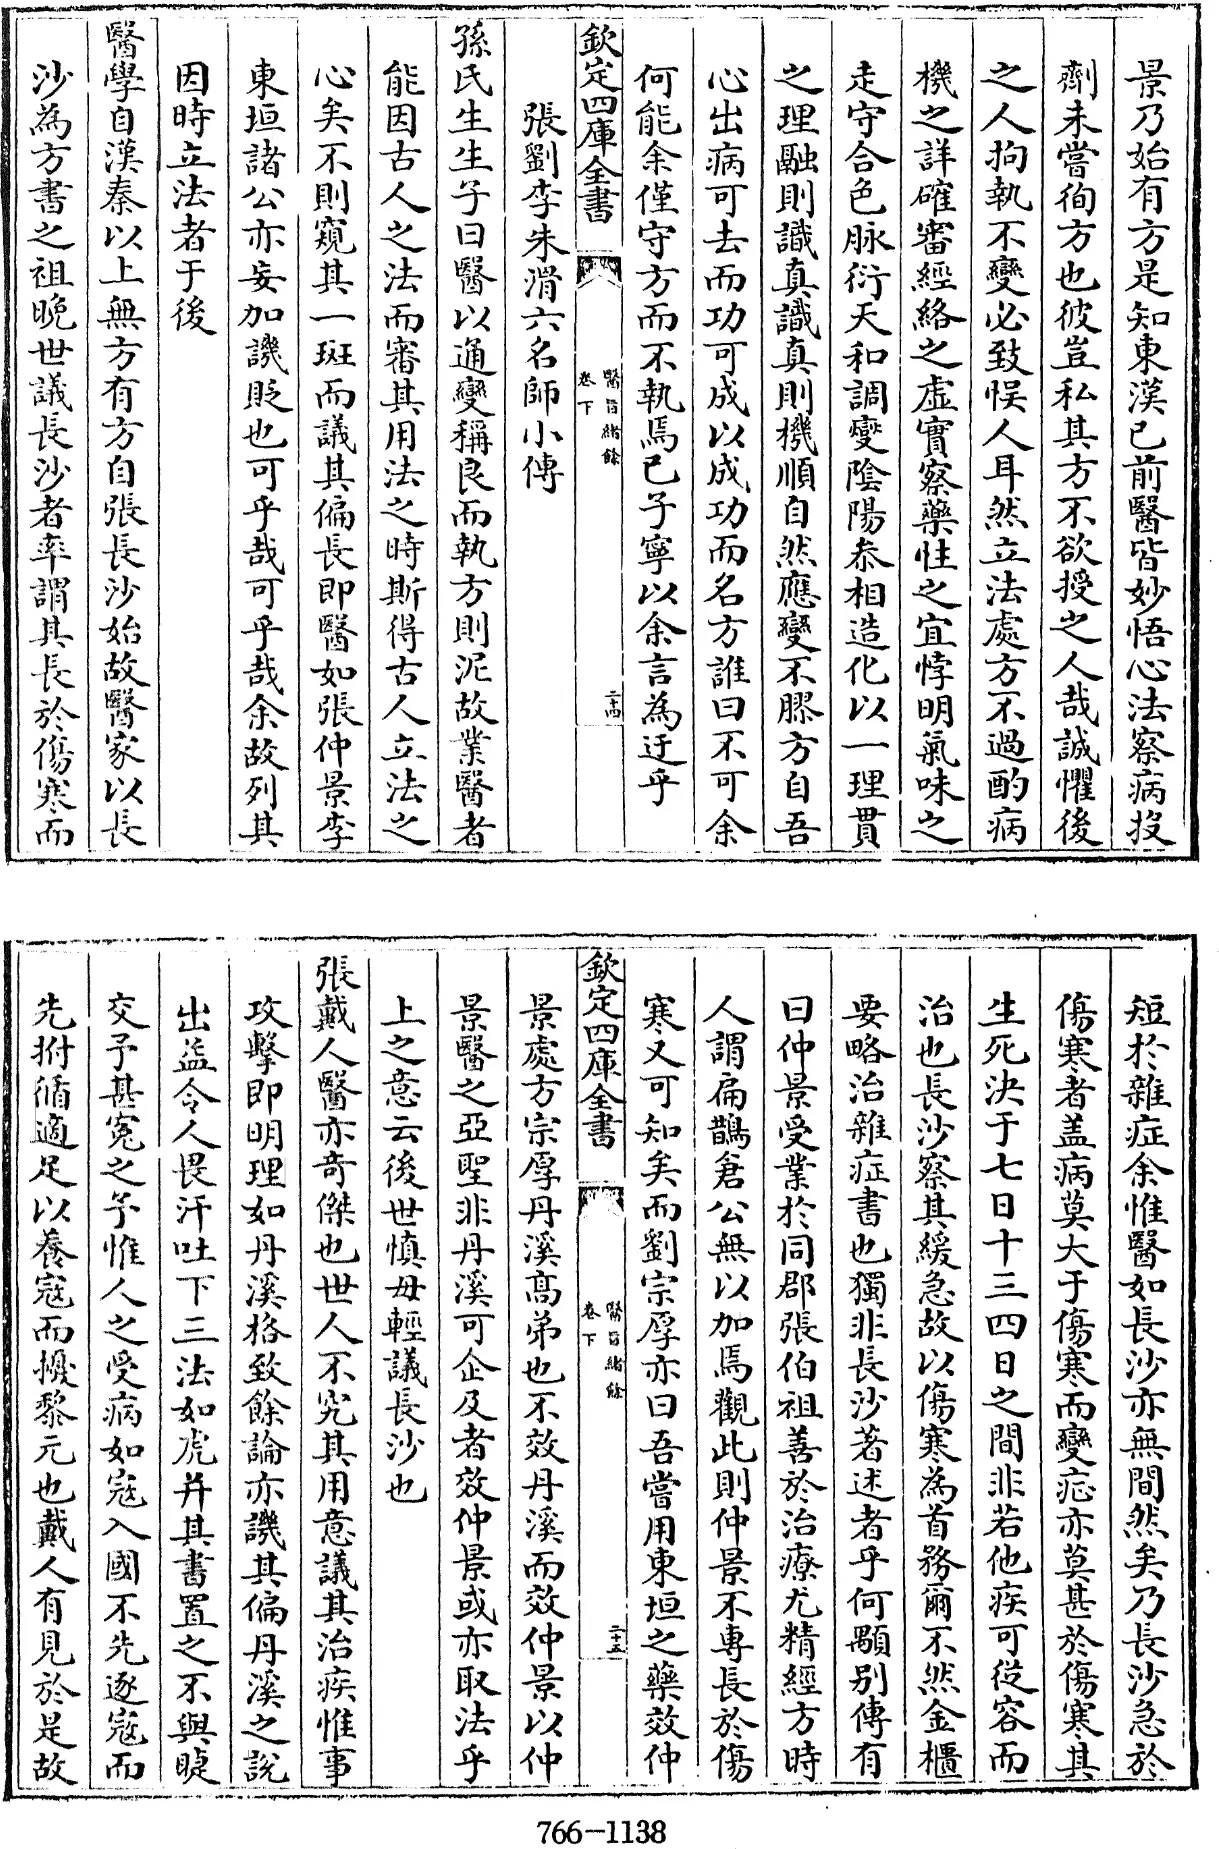 景乃始有方是知東漢已前醫皆妙悟心法察病投
劑未嘗徇方也彼豈私其方不欲授之人哉誠懼後
之人拘執不變必致悮人耳然立法處方不過酌病
機之詳確審經絡之虛實察藥性之宜悖明氣味之
走守合色脉衍天和調燮陰陽叅相造化以一理貫
之理融則識真識真則機順自然應變不膠方自吾
心出病可去而功可成以成功而名方誰曰不可余
何能余僅守方而不執焉已子寧以余言為迂乎
欽定四庫全書
醫旨緒餘
卷下
二十四
張劉李朱滑六名師小傳
孫氏生生子曰醫以通變稱良而執方則泥故業醫者
能因古人之法而審其用法之時斯得古人立法之
心矣不則窺其一斑而議其偏長即醫如張仲景李
東垣諸公亦妄加譏貶也可乎哉可乎哉余故列其
因時立法者于後
醫學自漢秦以上無方有方自張長沙始故醫家以長
沙為方書之祖晚世議長沙者率謂其長於傷寒而
短於雜症余惟醫如長沙亦無間然矣乃長沙急於
傷寒者盖病莫大于傷寒而變症亦莫甚於傷寒其
生死決于七日十三四日之間非若他疾可從容而
治也長沙察其緩急故以傷寒為首務爾不然金櫃
要略治雜症書也獨非長沙著述者乎何顒别傳有
曰仲景受業於同郡張伯祖善於治療尤精經方時
人謂扁鵲倉公無以加焉觀此則仲景不專長於傷
寒又可知矣而劉宗厚亦曰吾嘗用東垣之藥效仲
欽定四庫全書
醫旨緒餘
卷下
二十五
景處方宗厚丹溪髙弟也不效丹溪而效仲景以仲
景醫之亞聖非丹溪可企及者效仲景或亦取法乎
上之意云後世慎毋輕議長沙也
張戴人醫亦奇傑也世人不究其用意議其治疾惟事
攻擊即明理如丹溪格致餘論亦譏其偏丹溪之説
出益令人畏汗吐下三法如虎并其書置之不與睫
交予甚寃之予惟人之受病如寇入國不先逐寇而
先拊循適足以養寇而擾黎元也戴人有見於是故
766-1138